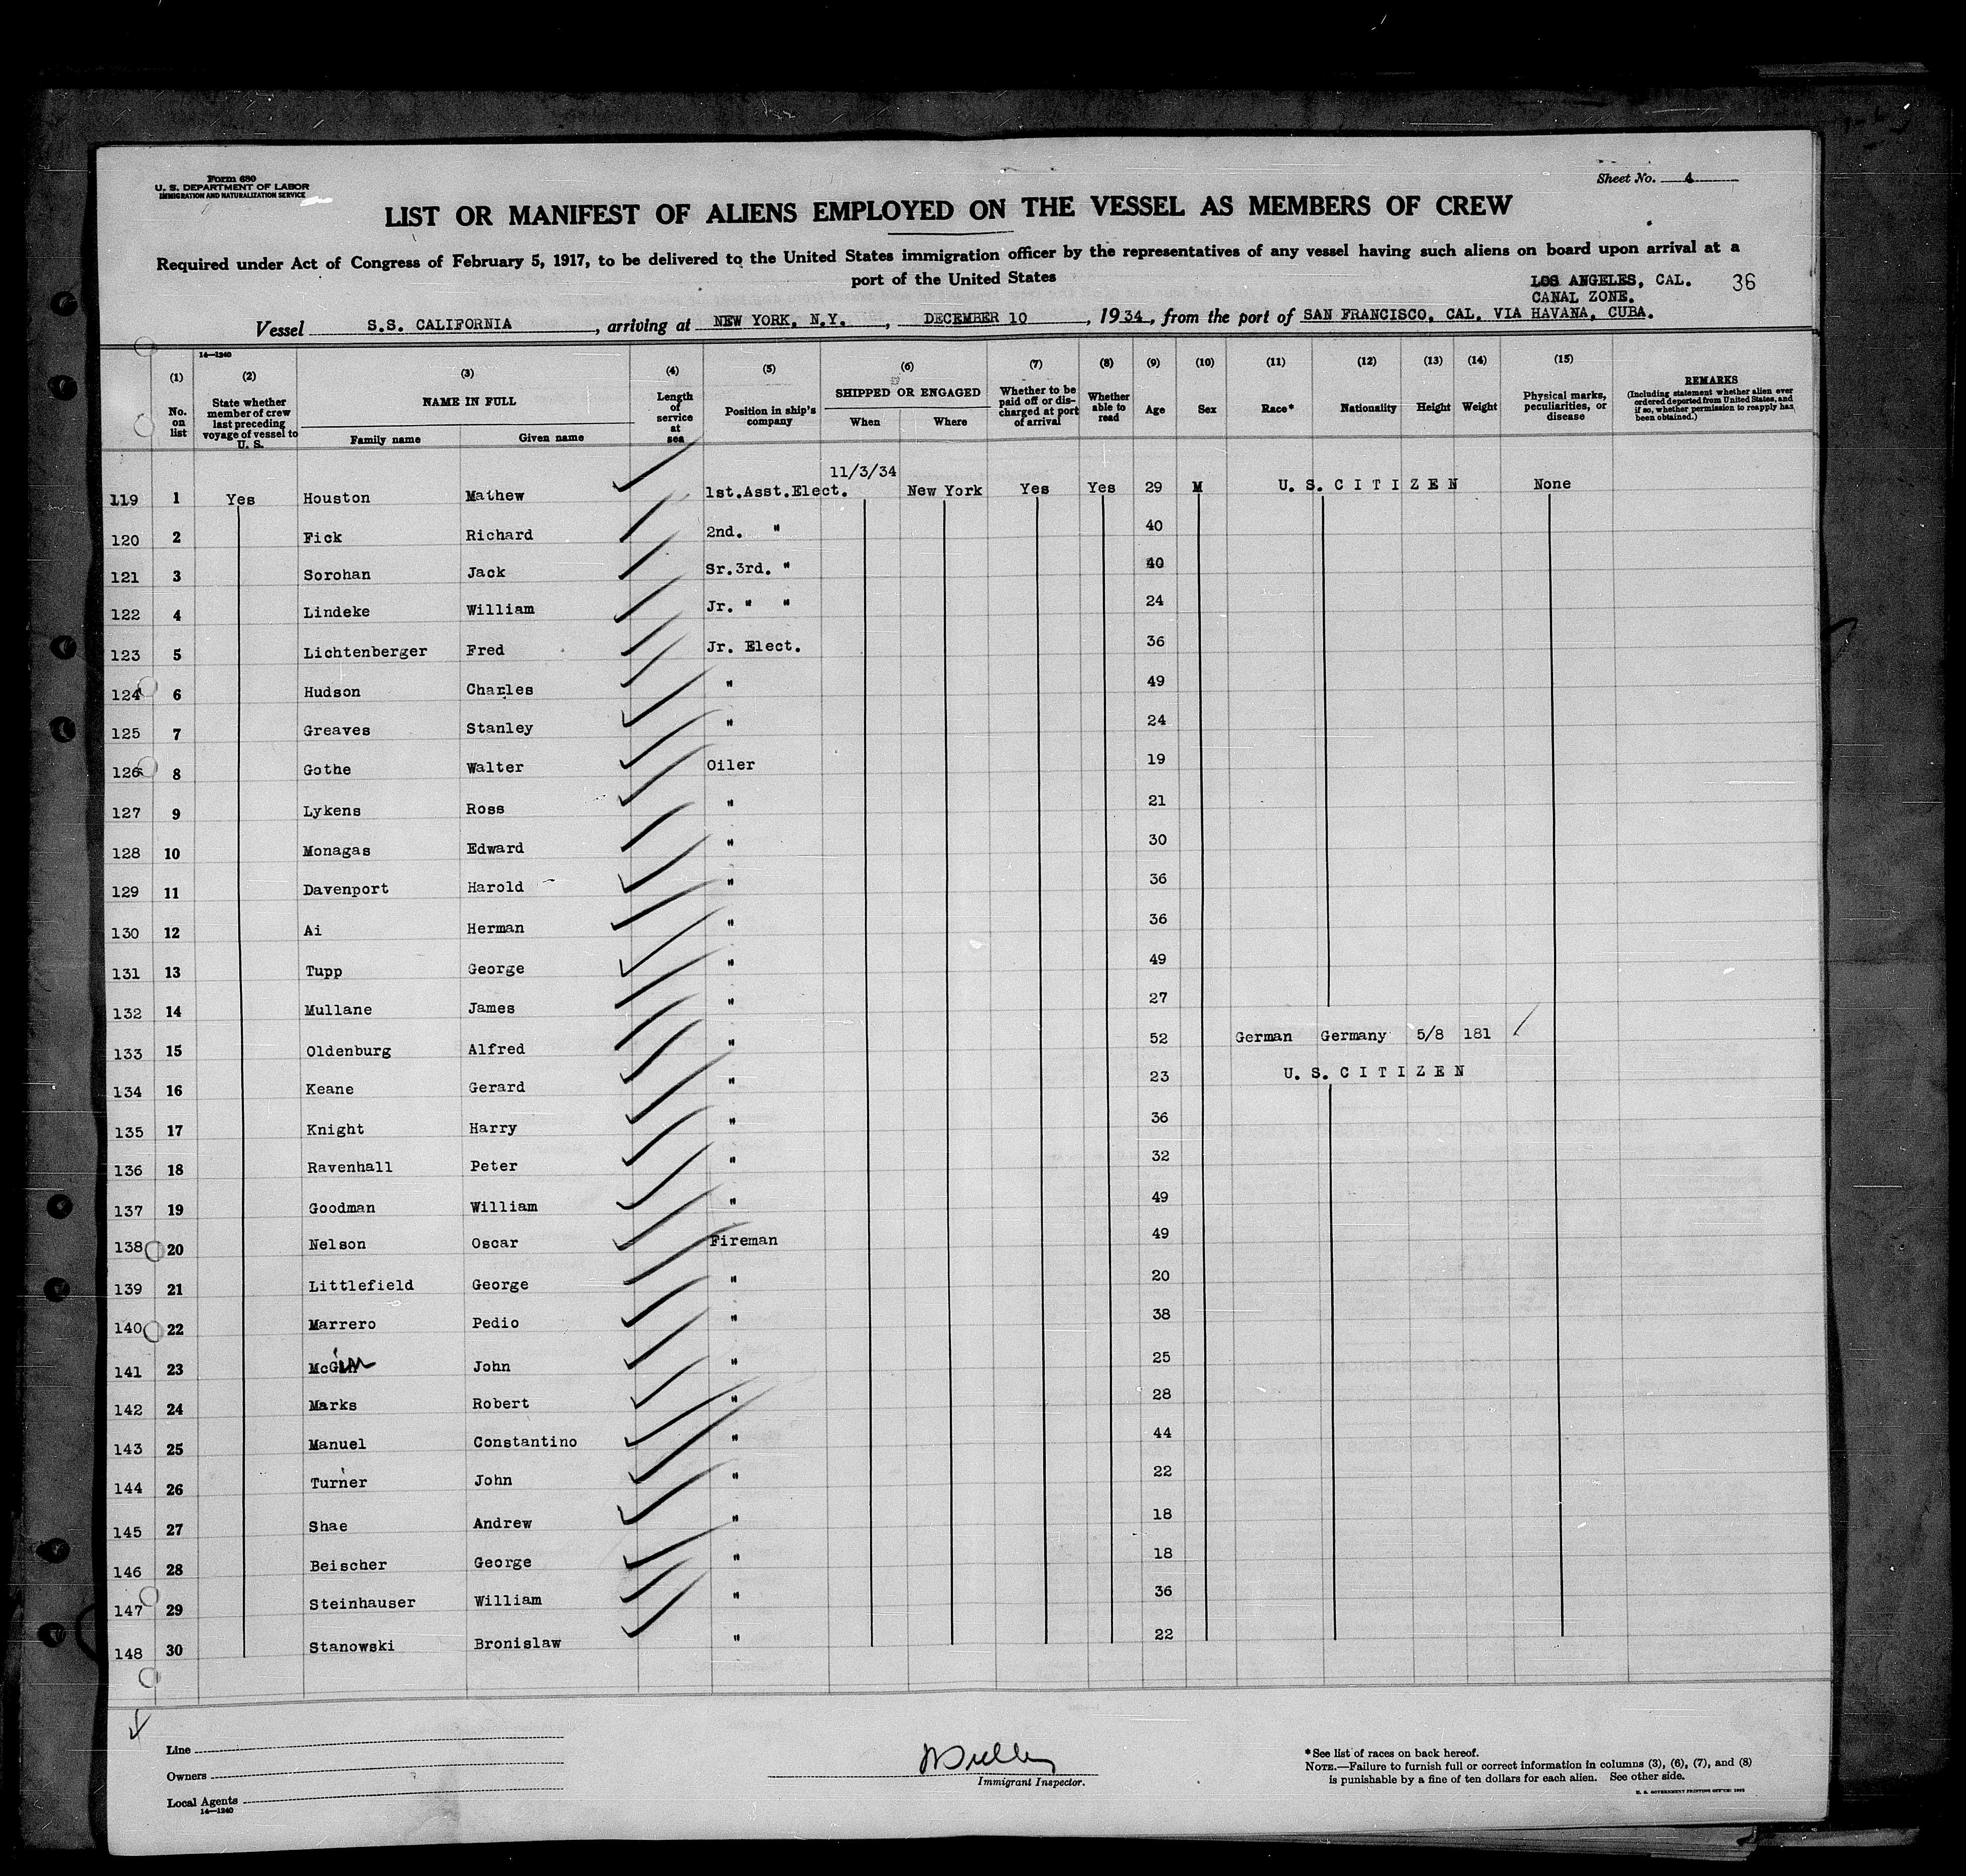 Form 680
U. S. DEPARTMENT OF LABOR
IMMIGRATION AND NATURALIZATION SERVICE
Sheet No. 4
LIST OR MANIFEST OF ALIENS EMPLOYED ON THE VESSEL AS MEMBERS OF CREW
Required under Act of Congress of February 5, 1917, to be delivered to the United States immigration officer by the representatives of any vessel having such aliens on board upon arrival at a
port of the United States
LOS ANGELES, CAL. 36
CANAL ZONE.
Vessel S.S. CALIFORNIA, arriving at NEW YORK, N.Y., DECEMBER 10, 1934, from the port of SAN FRANCISCO, CAL. VIA HAVANA, CUBA.
14—1240
(1) No. on list
(2) State whether member of crew last preceding voyage of vessel to U. S.
(3) NAME IN FULL Family name Given name
(4) Length of service at sea
(5) Position in ship's company
(6) SHIPPED OR ENGAGED When Where
(7) Whether to be paid off or discharged at port of arrival
(8) Whether able to read
(9) Age
(10) Sex
(11) Race*
(12) Nationality
(13) Height
(14) Weight
(15) Physical marks, peculiarities, or disease
REMARKS (Including statement whether alien ever ordered deported from United States, and if so, whether permission to reapply has been obtained.)
11/3/34
119 1 Yes Houston Mathew 1st.Asst.Elect. New York Yes Yes 29 M U. S. C I T I Z E N None
120 2 Fick Richard 2nd. " 40
121 3 Sorohan Jack Sr.3rd. " 40
122 4 Lindeke William Jr. " " 24
123 5 Lichtenberger Fred Jr. Elect. 36
124 6 Hudson Charles " 49
125 7 Greaves Stanley " 24
126 8 Gothe Walter Oiler 19
127 9 Lykens Ross " 21
128 10 Monagas Edward " 30
129 11 Davenport Harold " 36
130 12 Ai Herman " 36
131 13 Tupp George " 49
132 14 Mullane James " 27
133 15 Oldenburg Alfred " 52 German Germany 5/8 181
134 16 Keane Gerard " 23 U. S. C I T I Z E N
135 17 Knight Harry " 36
136 18 Ravenhall Peter " 32
137 19 Goodman William " 49
138 20 Nelson Oscar Fireman 49
139 21 Littlefield George " 20
140 22 Marrero Pedio " 38
141 23 John " 25
142 24 Marks Robert " 28
143 25 Manuel Constantino " 44
144 26 Turner John " 22
145 27 Shae Andrew " 18
146 28 Beischer George " 18
147 29 Steinhauser William " 36
148 30 Stanowski Bronislaw " 22
Line
Owners
Local Agents
14—1240
Immigrant Inspector.
*See list of races on back hereof.
NOTE.—Failure to furnish full or correct information in columns (3), (6), (7), and (8)
is punishable by a fine of ten dollars for each alien. See other side.